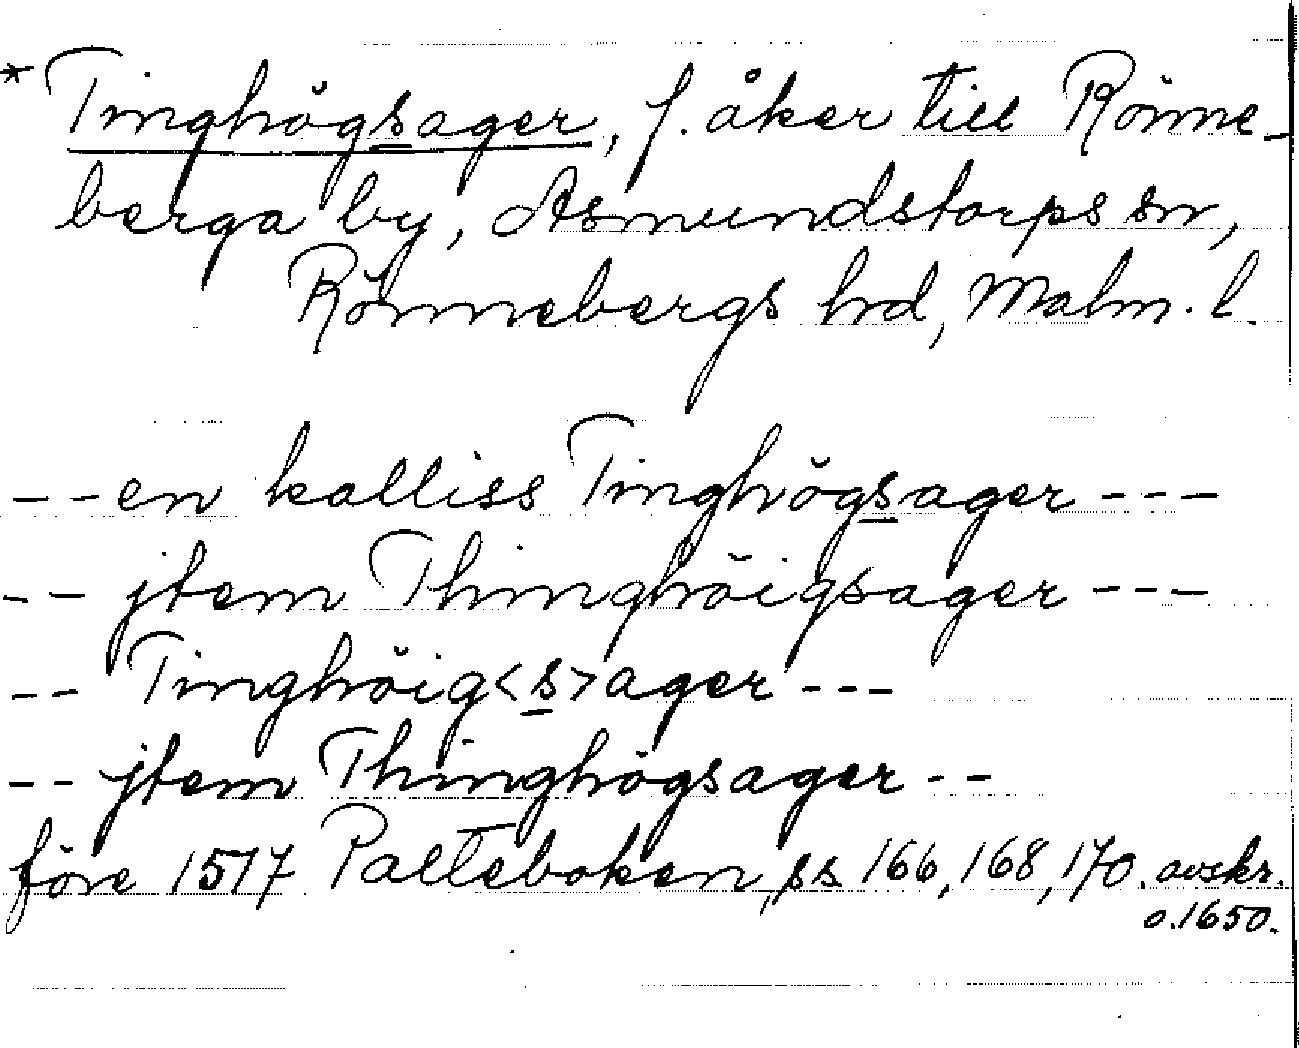 *Tinghögsager, f. åker till Rönne-
berga by, Asmundstorps sn,
Rönnebergs hd, Malm. l.
--en kalliss Tinghögsager---
-- jtem Thinghöigsager---
-- Tinghöig<s>ager---
-- jtem Thinghögsager--
före 1517 Palteboken, ss 166, 168, 170. avskr.
o. 1650.